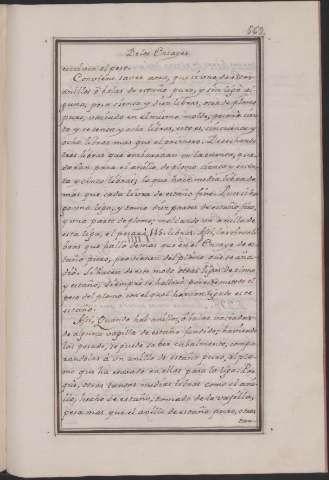 De los Ensayes
escluso el peso.
Conviene saver aora, que si una de estos
anillos ó balas de estaño puro, y sin liga al-
guna, pesa ciento y diez libras, otra de plomo
puro, vaciada en el mismo molde, pesará cien-
to y sesenta y ocho libras, esto es, cincuenta y
ocho libras mas que el primero.
tres libras que
darán para el anillo de plomo ciento y
ta y cinco libras; lo que hace media libra de
mas que cada libra de estaño fino.
go una liga, y tomo dos partes de estaño fino,
y una parte de plomo; moldando un anillo de
esta liga, el pesará 145. libras. Assi, las
bras que hallo de mas que en el Ensaye de es-
taño puro, provienen del plomo que se aña-
dió. Se hacen de este modo otras ligas de plomo
y estaño, siempre se hallará
peso del plomo con el qual han de es-
taño.
Assi, Quando hai anillos, ó balas vaciadas
de alguna vagilla de estaño fundido; haviendo-
los pesado, se puede saber cabalmente, compa-
randolas á un anillo de estaño puro, el plo-
mo que ha entrado en ellas para la liga: Por-
que, otras tantas medias libras como el ani-
llo, hecho de estaño, tomado de la vagilla,
pesa mas que el anillo de estaño puro, otras
tan-